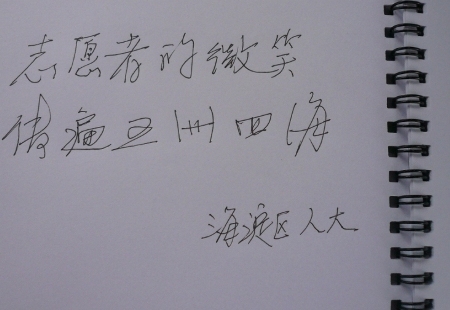 志愿者的微笑
传遍五洲四海
海淀区人大